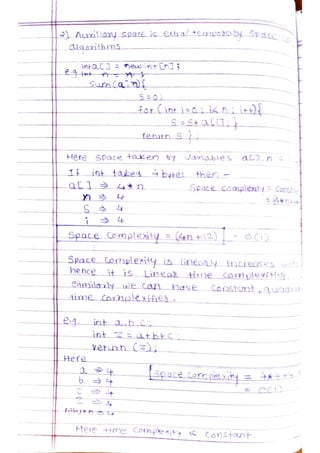 2) Auxillary space is extra/temporary space
algorithms.
int a[] = new int[n];
e.g. int n = n;
Sum(a,n){
S=0;
for(int i=0; i<n; i++){
S = S+a[i]; }
return S };
Here space taken by variables a[], n
If int takes 4 bytes then -
a[] ⇒ 4*n Space complexity =
n ⇒ 4
S ⇒ 4
i ⇒ 4
Space Complexity = (4n+12) = O(1)
Space Complexity is linearly increases
hence it is Linear time complexities
similarly we can have constant,
time complexities.
e.g. int a,b,c;
int z = a+b+c;
return (z);
Here
a ⇒ 4 Space Complexity =
b ⇒ 4 = O(1)
c ⇒ 4
z ⇒ 4
return ⇒ 4
Here time complexity is constant.